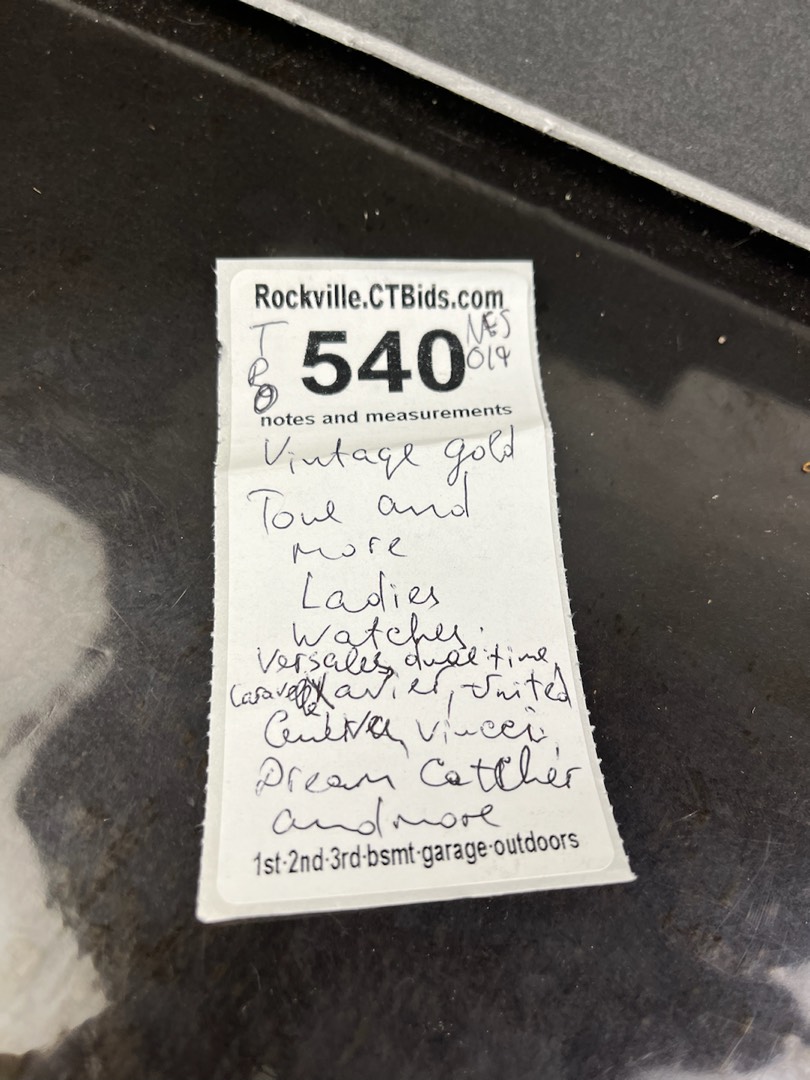 Rockville.CTBids.com
T 540 NES
P 014
notes and measurements
Vintage gold
Tone and
more
Ladies
Watches.
Versales, dual time,
Caravelle Xavier, United
Vincci,
Dream Catcher
and more
1st·2nd·3rd·bsmt·garage·outdoors